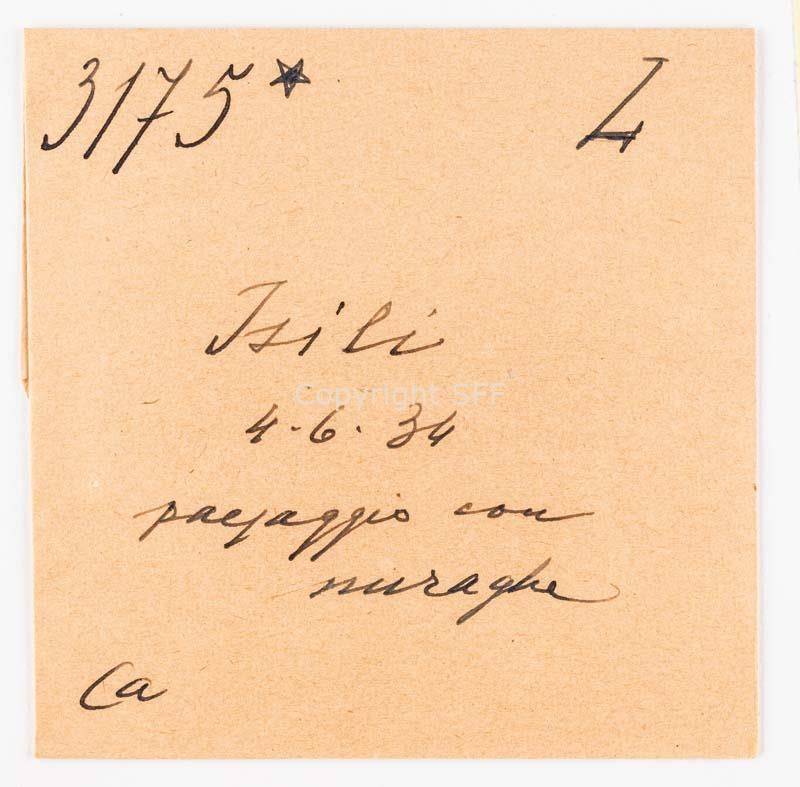 3175* L
Isili
Copyright SFF
4-6-34
paesaggio con
nuraghe
Ca